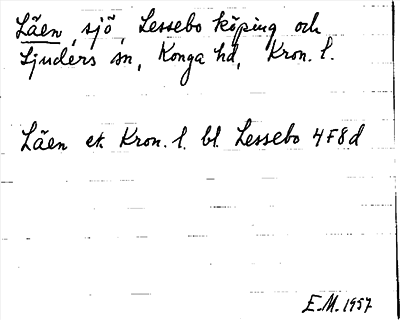 Läen, sjö, Lessebo köping och
Ljuders sn, Konga hd, Kron. l.
Läen ek. Kron. l. bl. Lessebo 4F8d
E.M. 1957